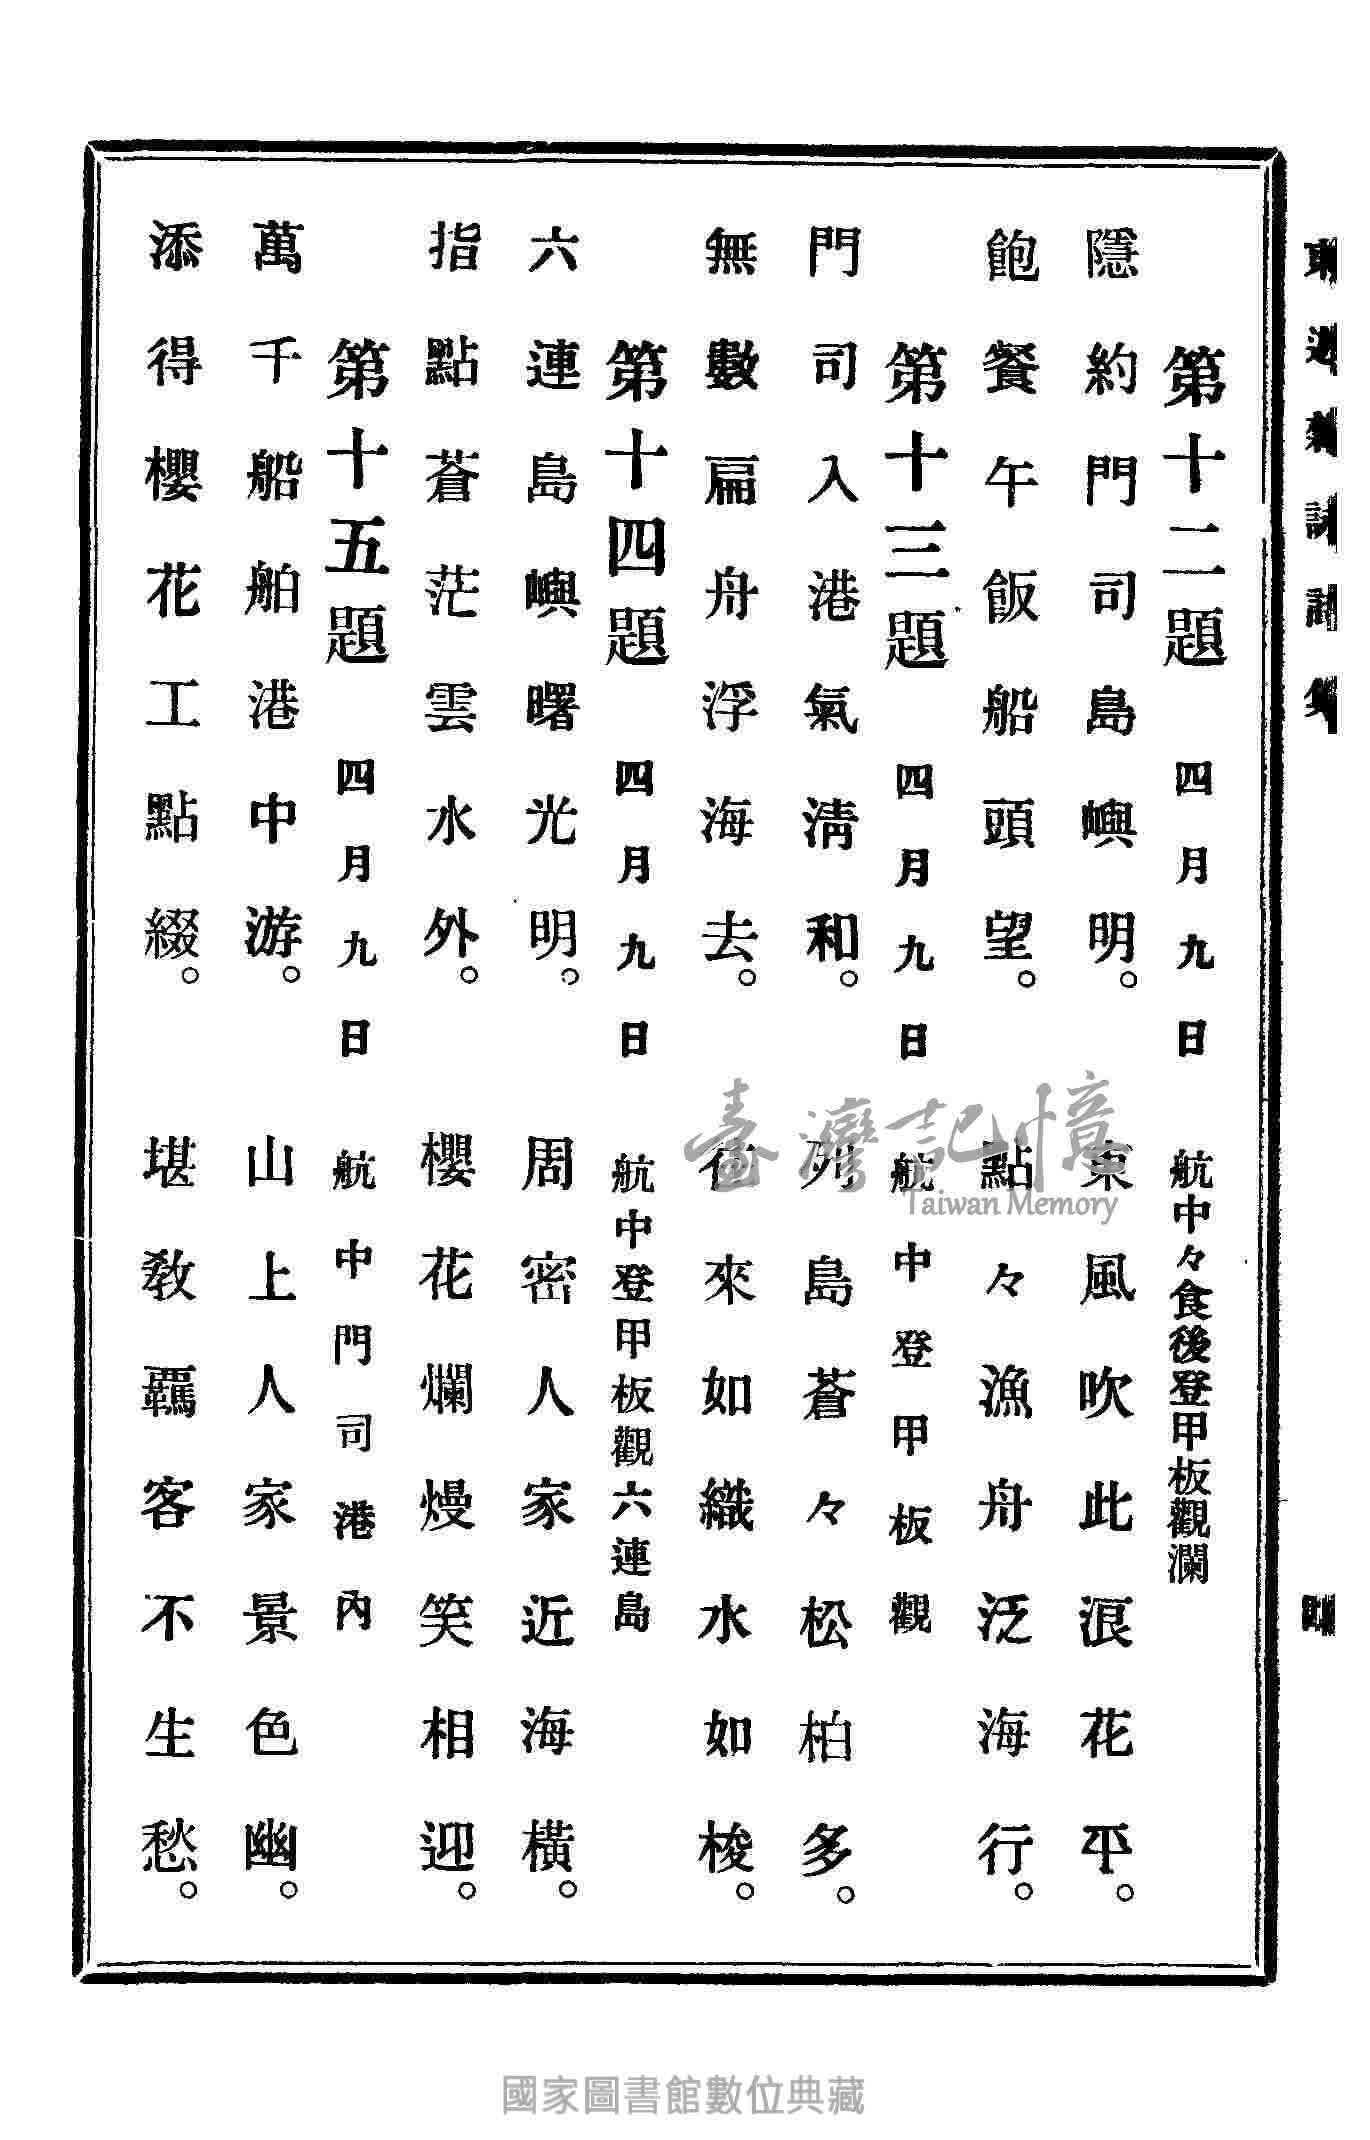 東遊雜詠詩集
四
第十二題 四月九日 航中々食後登甲板觀瀾
隱約門司島嶼明。 東風吹此浪花平。
飽餐午飯船頭望。 點々漁舟泛海行。
第十三題 四月九日 航中登甲板觀
門司入港氣淸和。 列島蒼々松柏多。
無數扁舟浮海去。 往來如織水如梭。
第十四題 四月九日 航中登甲板觀六連島
六連島嶼曙光明。 周密人家近海橫。
指點蒼茫雲水外。 櫻花爛熳笑相迎。
第十五題 四月九日 航中門司港內
萬千船舶港中游。 山上人家景色幽。
添得櫻花工點綴。 堪敎羈客不生愁。
臺灣記憶
Taiwan Memory
國家圖書館數位典藏